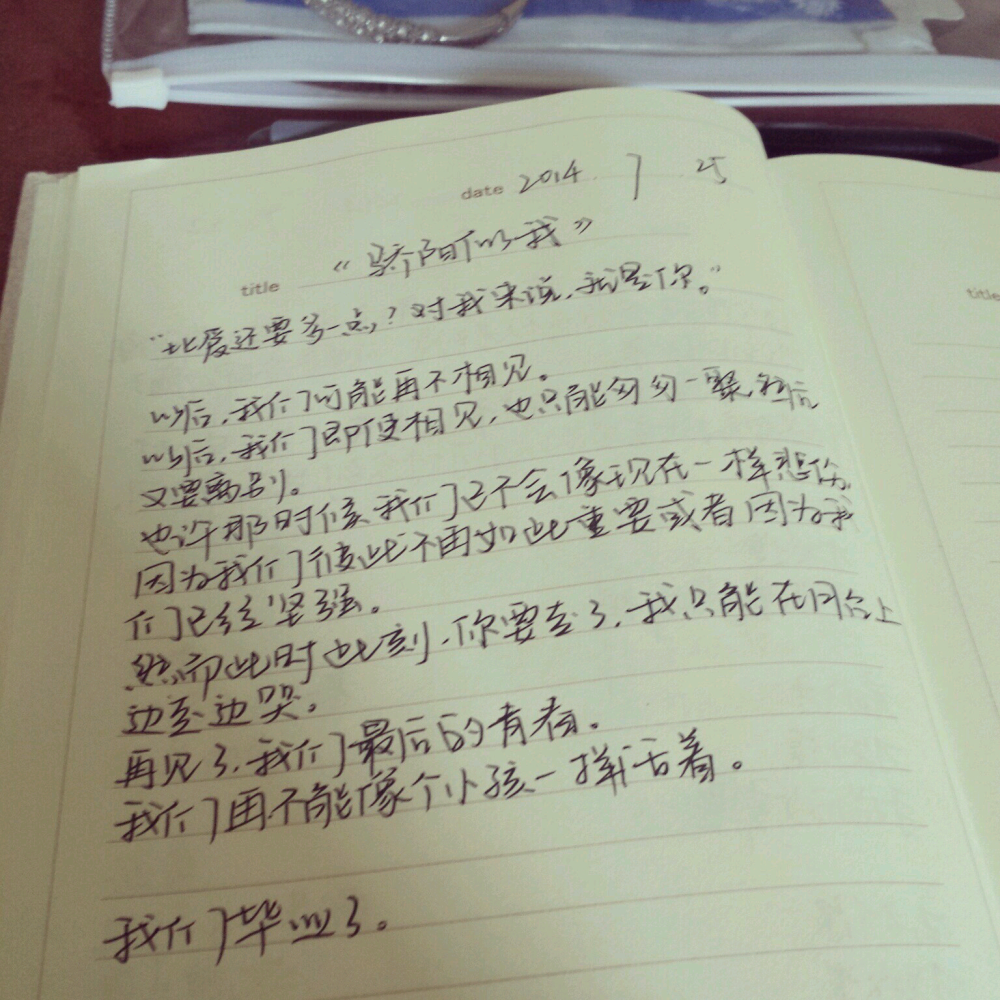 date 2014 7 25
title 《骄阳似我》
“比爱还要多一点？对我来说，就是你。”
以后，我们可能再不相见。
以后，我们即使相见，也只能匆匆一聚，然后
又要离别。
也许那时候我们已不会像现在一样悲伤，
因为我们彼此不再如此重要或者因为我
们已经坚强。
然而此时此刻，你要走了，我只能在月台上
边走边哭。
再见了，我们最后的青春。
我们再不能像个小孩一样活着。
我们毕业了。
title